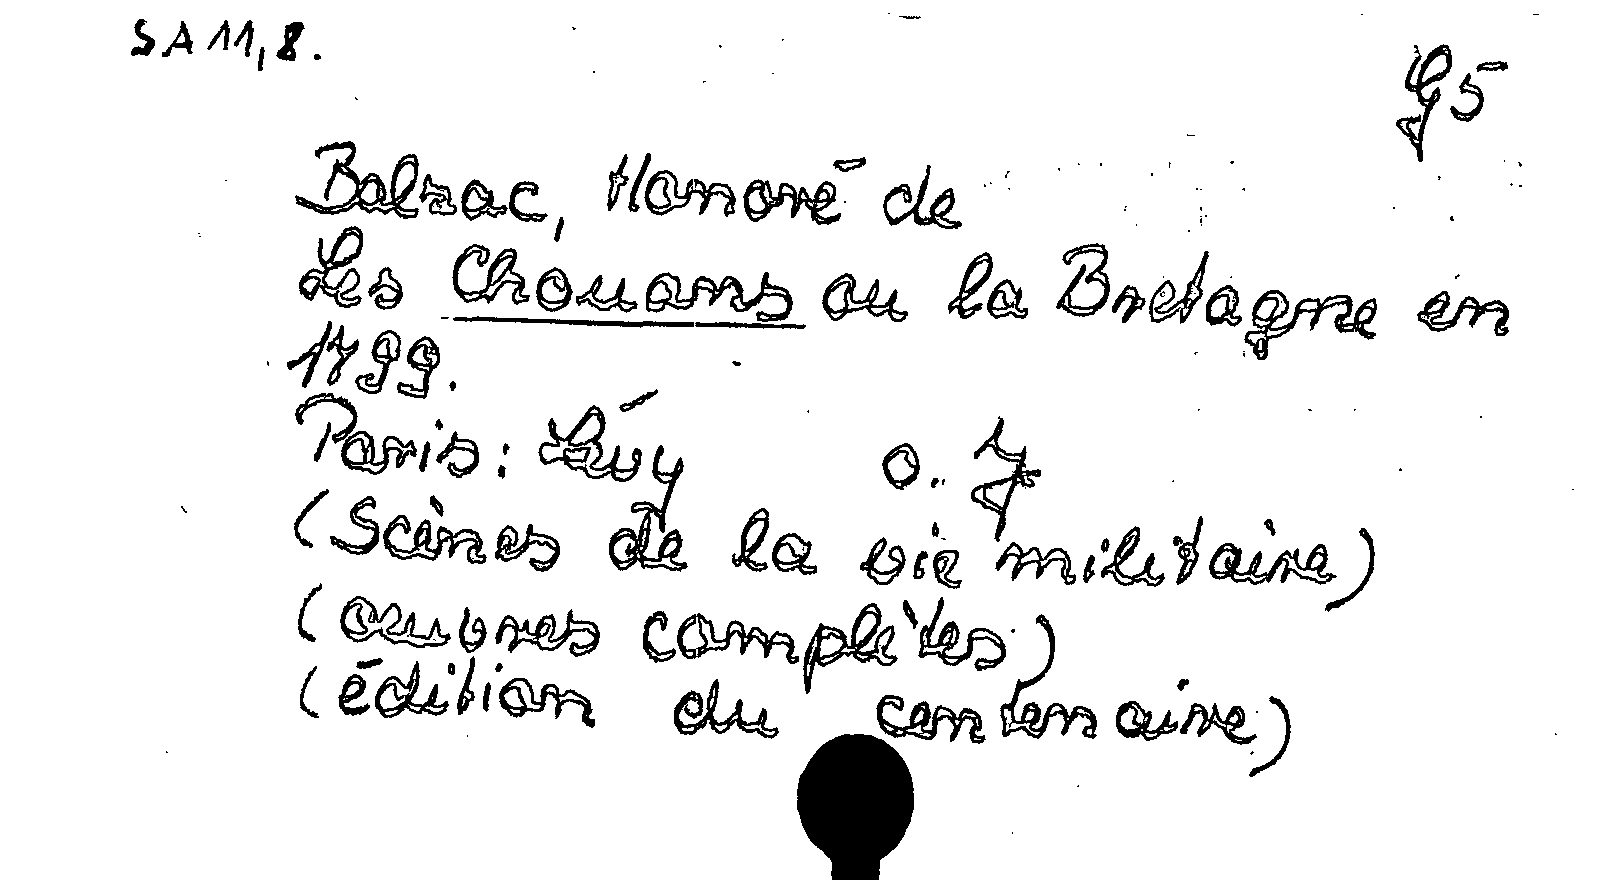 SA 11, 8.
G 5
Balzac, Honoré de
Les Chouans ou la Bretagne en
1799.
Paris: Lévy o. J.
(Scènes de la vie militaire)
(œuvres complètes)
(édition du centenaire)